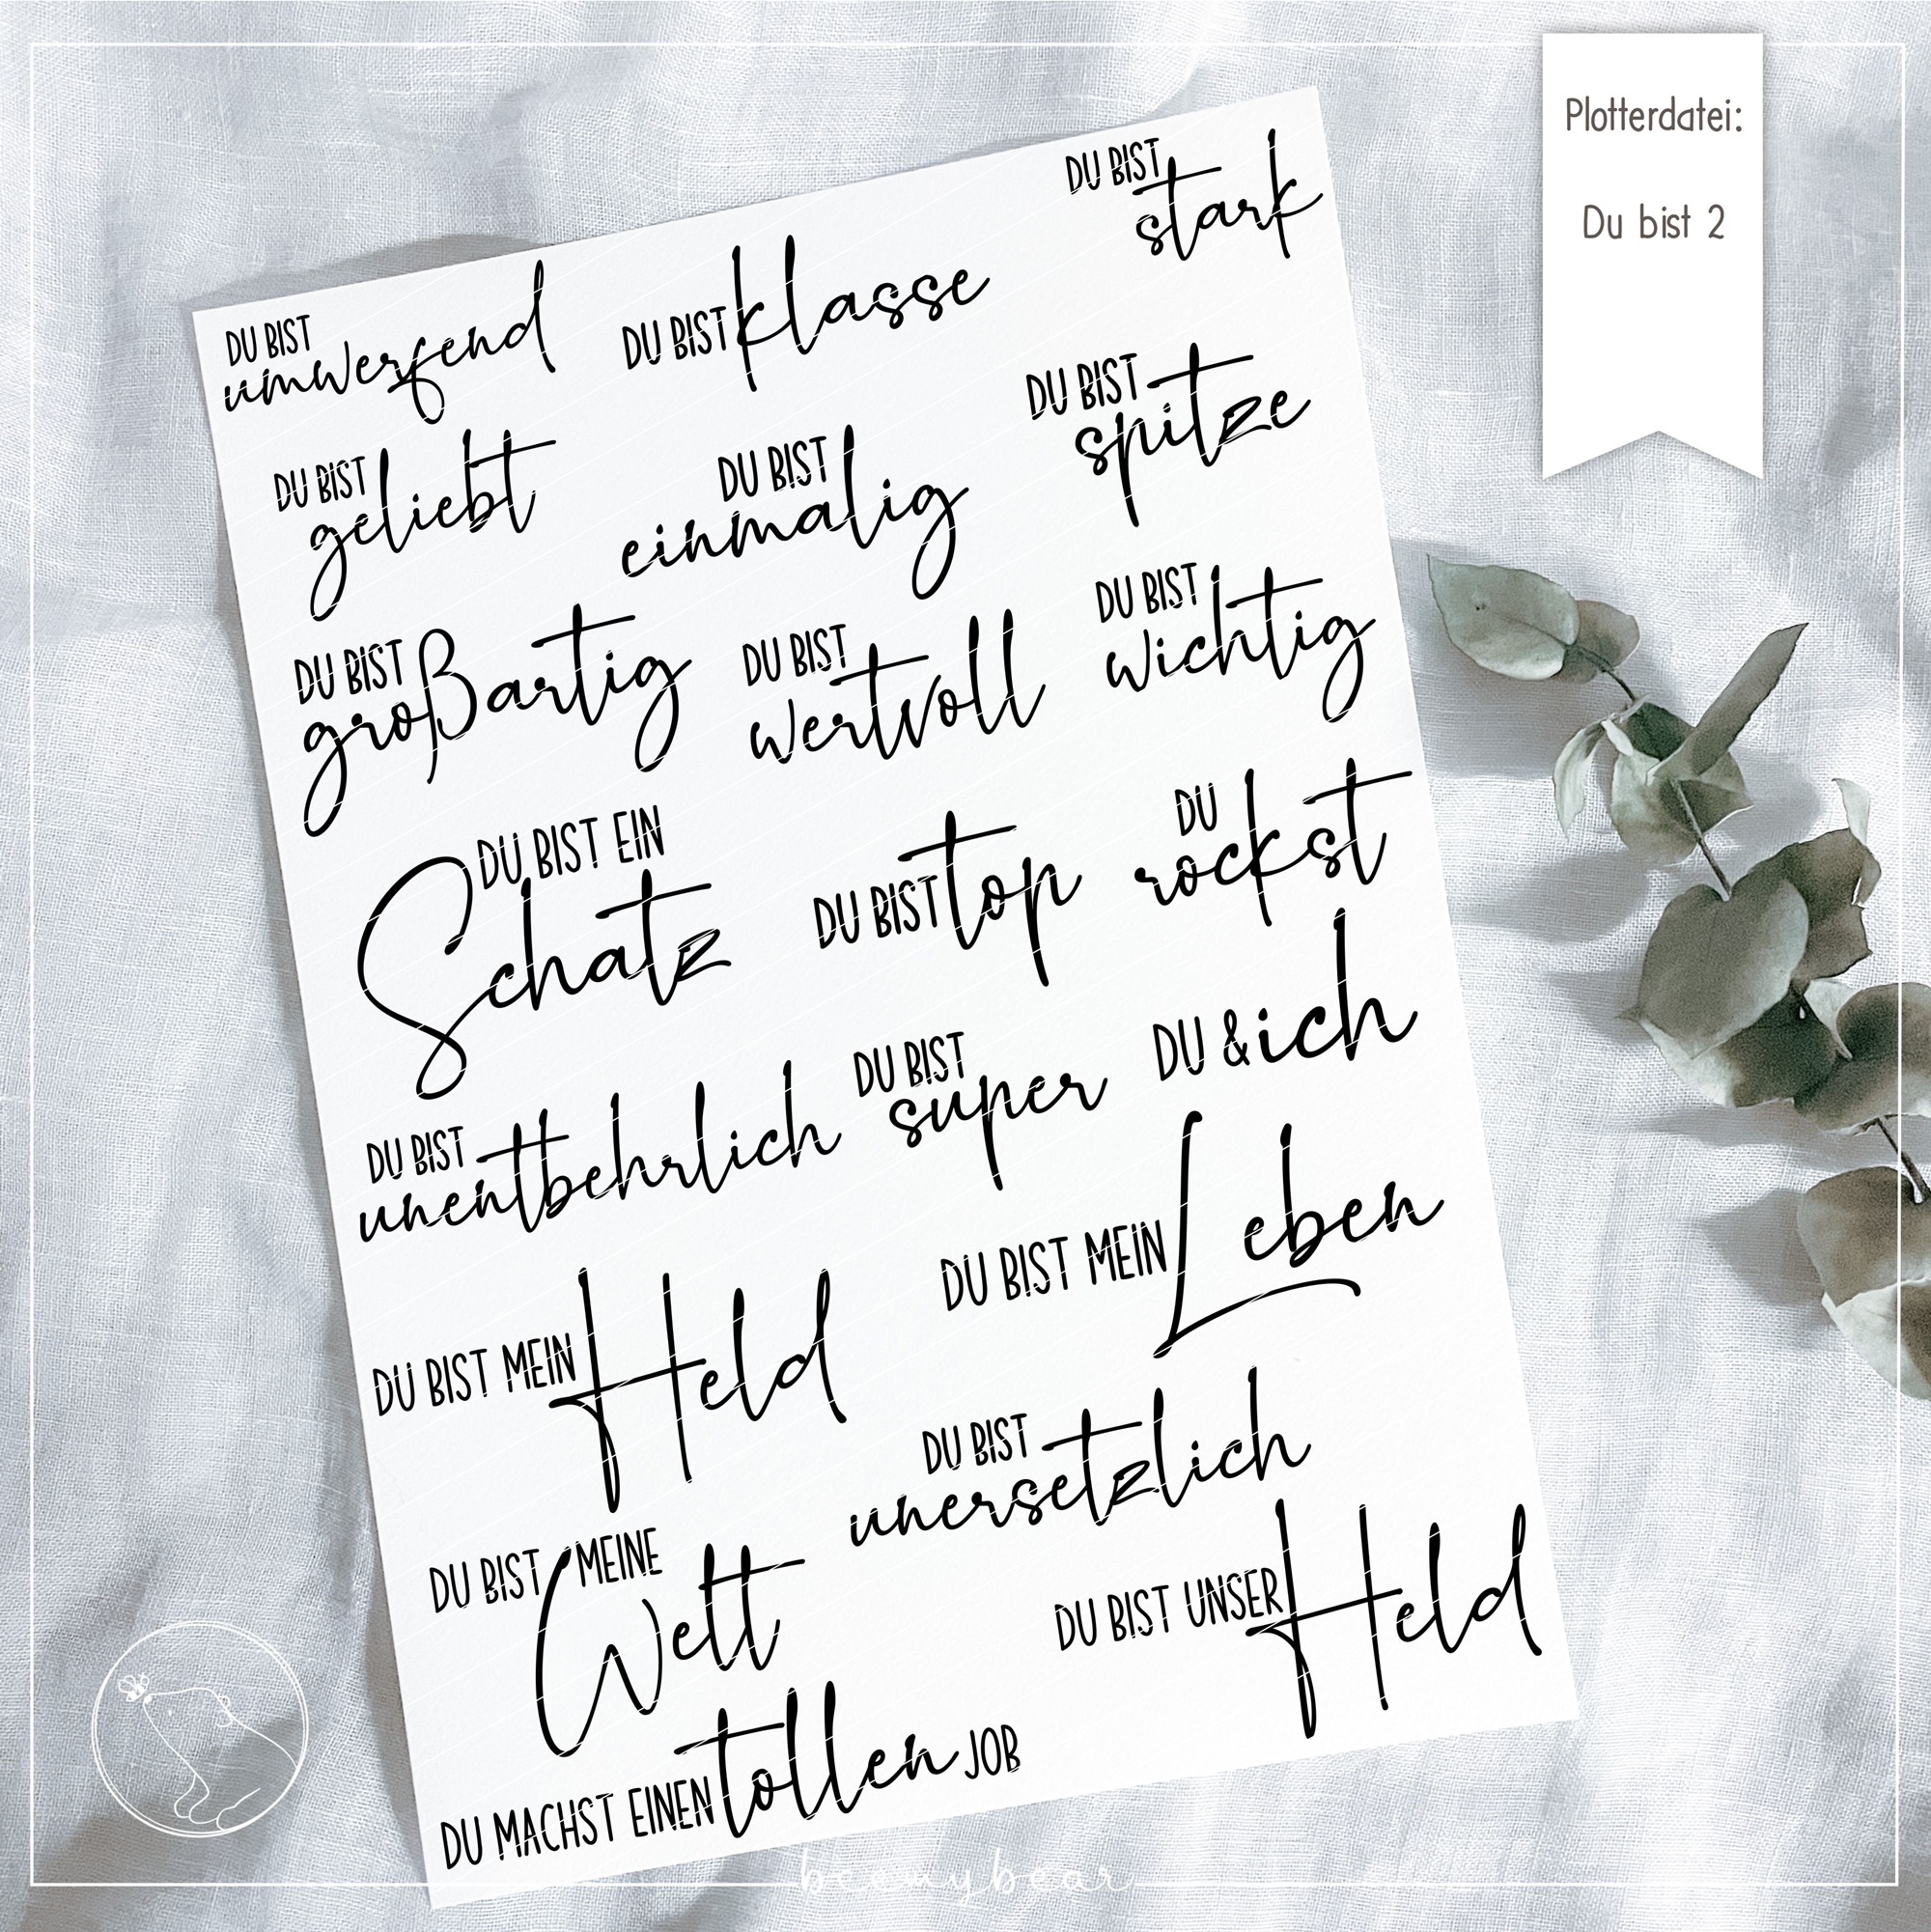 Plotterdatei:
Du bist 2
DU BIST
stark
DU BIST
umwerfend
DU BIST klasse
DU BIST
spitze
DU BIST
geliebt
DU BIST
einmalig
DU BIST
großartig
DU BIST
wertvoll
DU BIST
wichtig
DU BIST EIN
Schatz
DU BIST top
DU
rockst
DU BIST
unentbehrlich
DU BIST
super
DU & ich
DU BIST MEIN Leben
DU BIST MEIN Held
DU BIST
unersetzlich
DU BIST MEINE
Welt
DU BIST UNSER Held
DU MACHST EINEN tollen JOB
beemybear